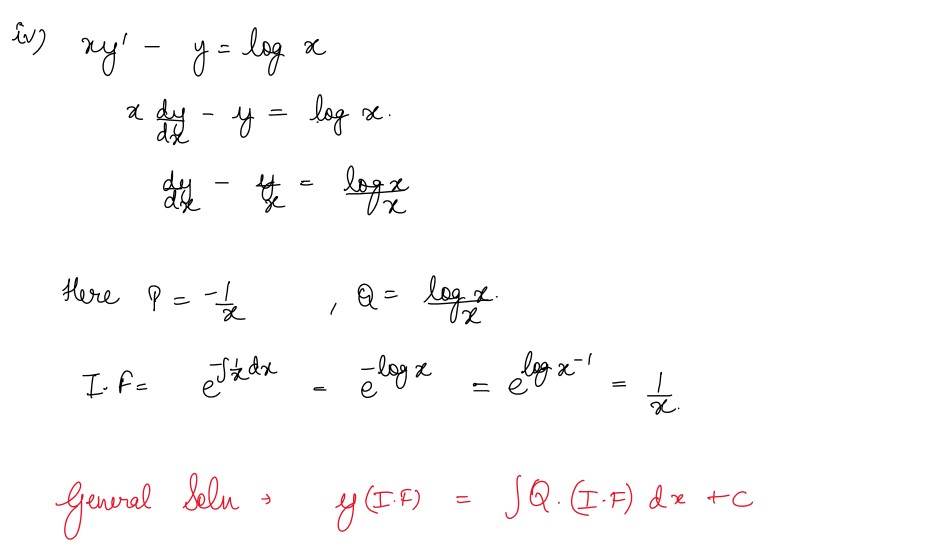 iv) xy' - y = log x
x dy/dx - y = log x.
dy/dx - y/x = log x/x
Here P = -1/x , Q = log x/x.
I.F = e^{-∫1/x dx} = e^{-log x} = e^{log x^{-1}} = 1/x.
General Soln → y (I.F) = ∫Q. (I.F) dx + C